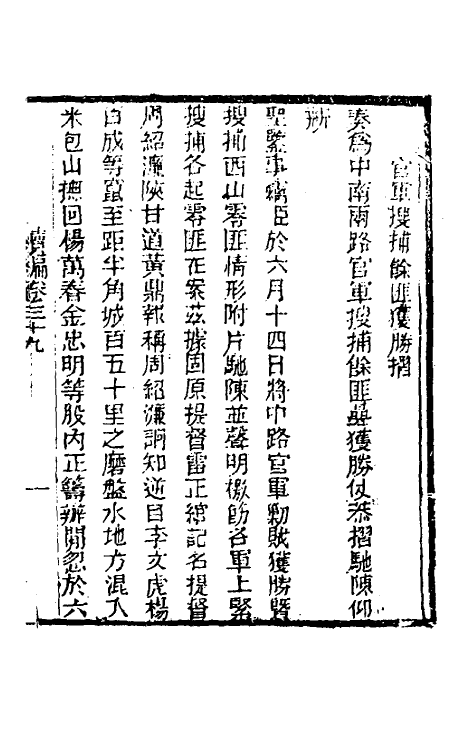 官軍搜捕餘匪獲勝摺
奏為中南兩路官軍搜捕餘匪疊獲勝仗恭摺馳陳仰
祈
聖鑒事竊臣於六月十四日將中路官軍勦賊獲勝暨
搜捕西山零匪情形附片馳陳並聲明檄飭各軍上緊
搜捕各起零匪在案茲據固原提督雷正綰記名提督
周紹濂陝甘道黃鼎報稱周紹濂詗知逆目李文虎楊
白成等竄至距半角城百五十里之磨盤水地方混入
米包山撫回楊萬春金忠明等股內正籌辦間忽於六
續編卷三十九
一